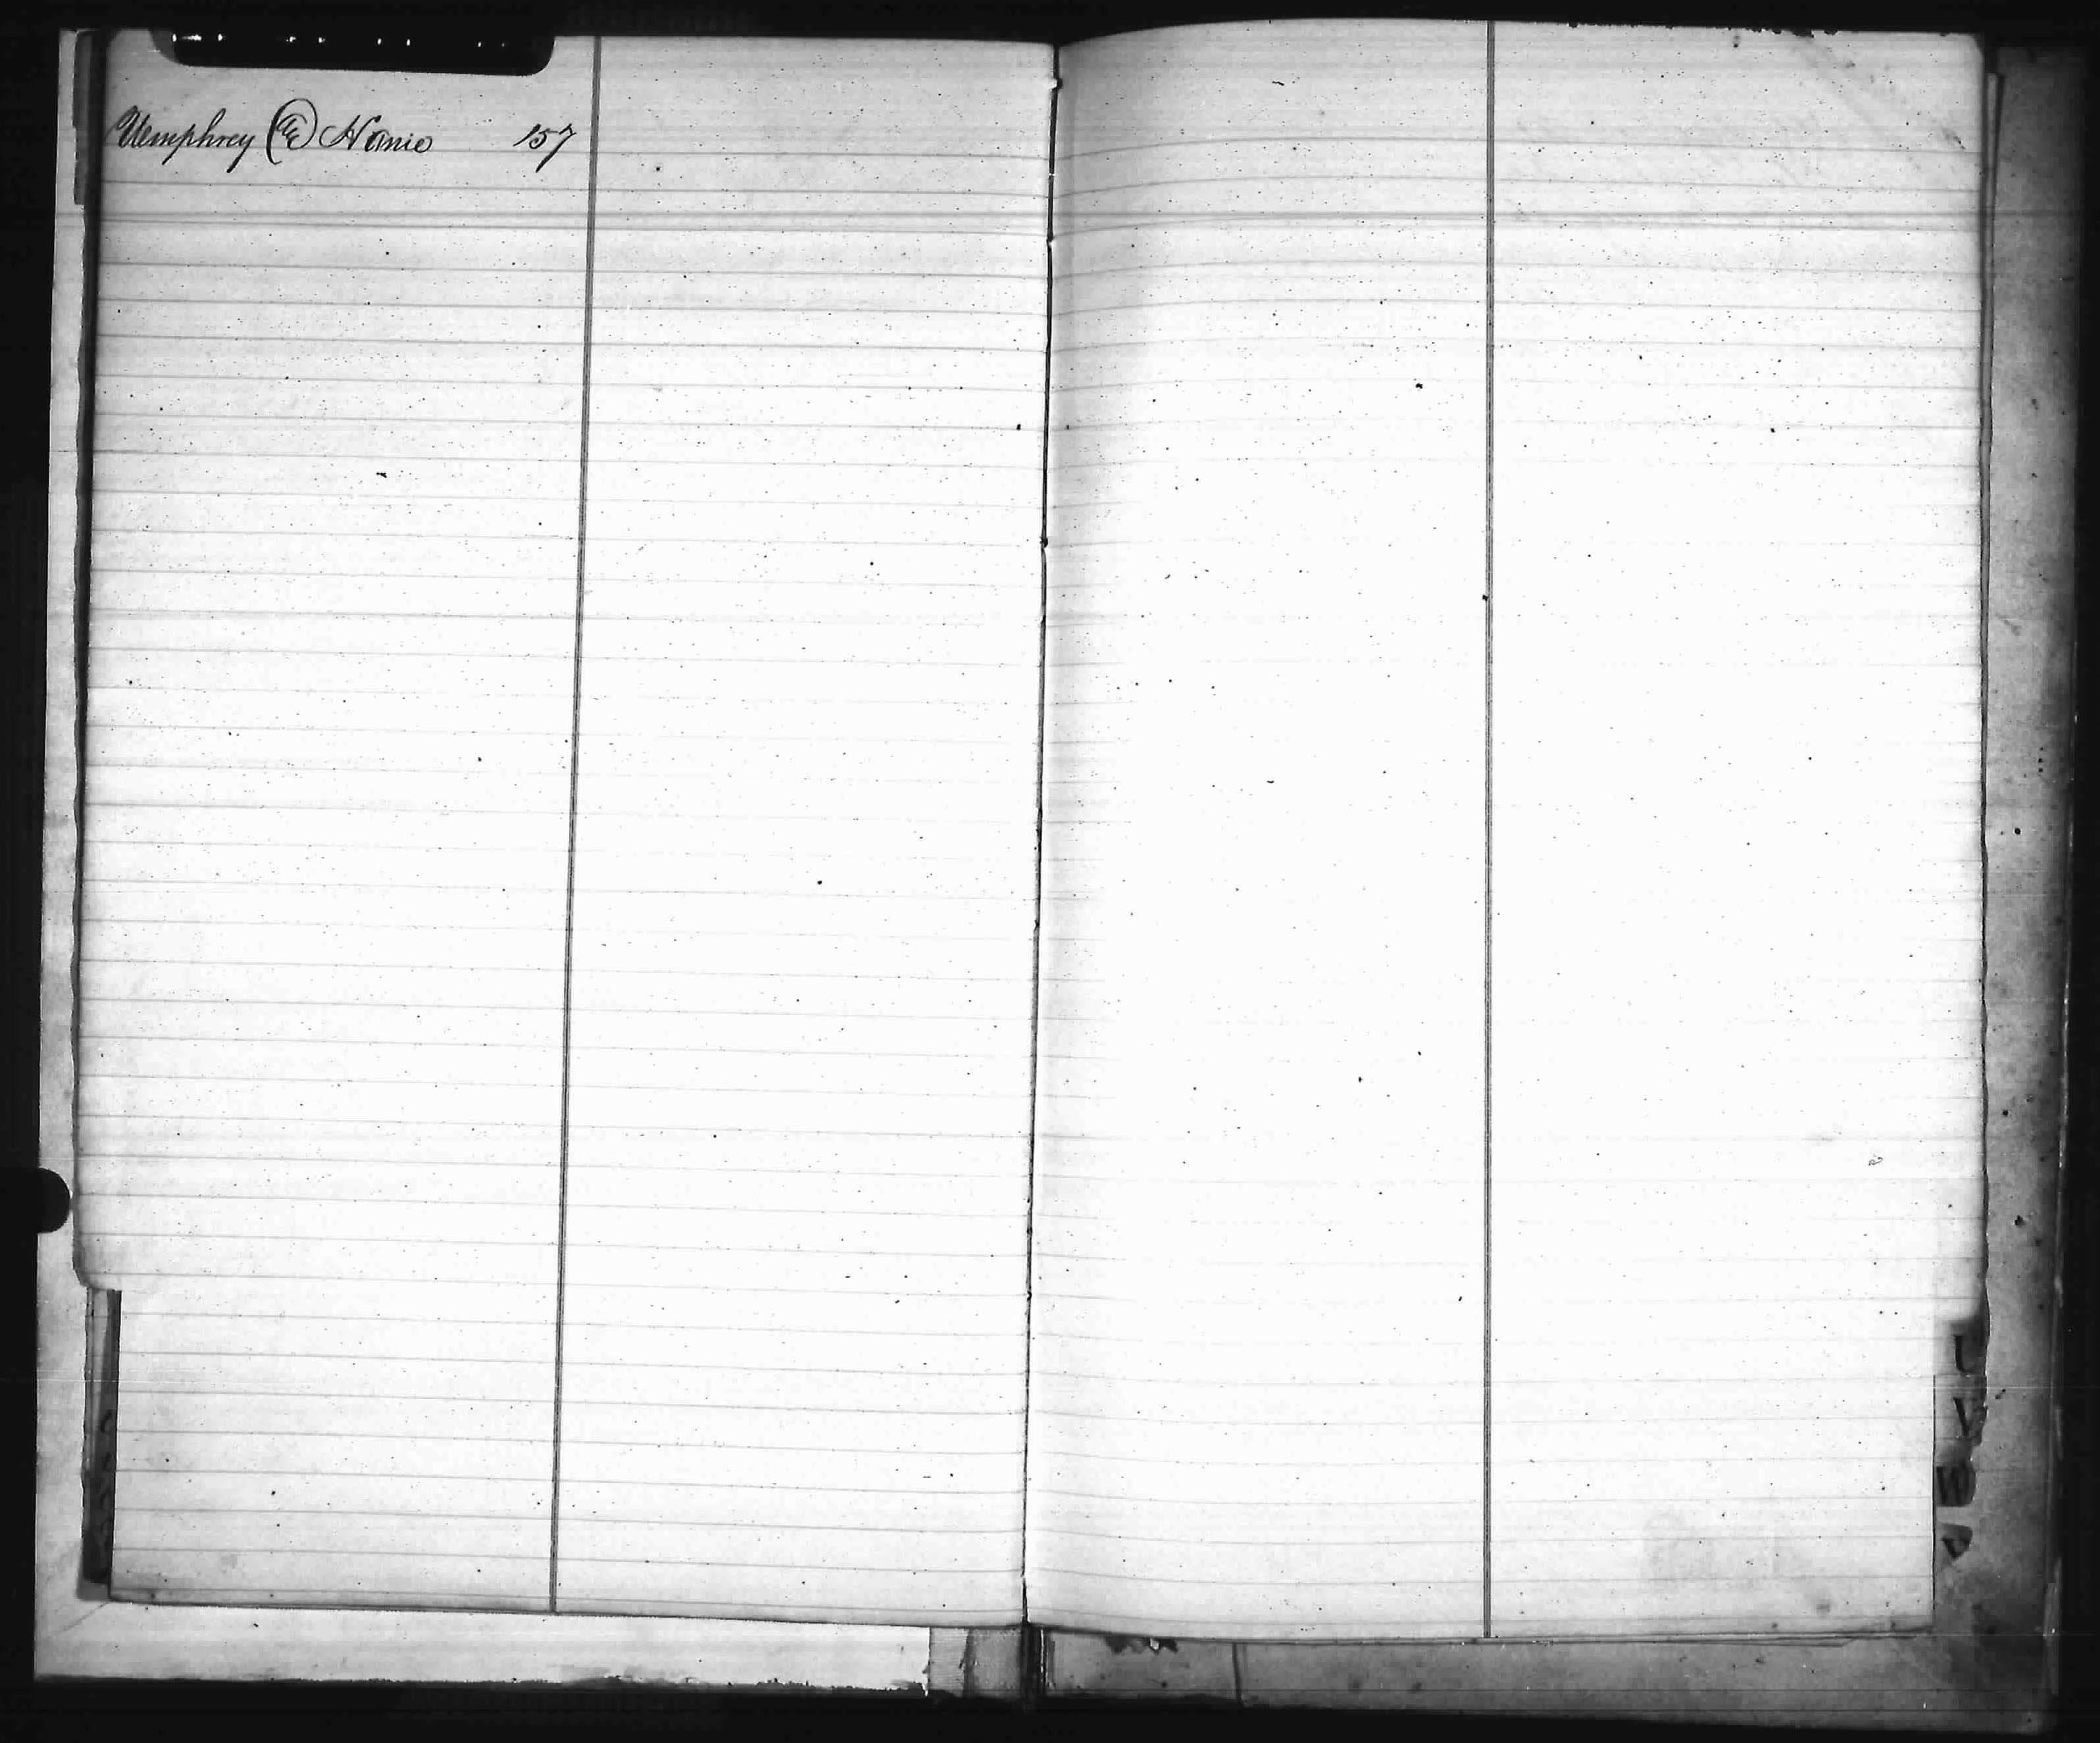 Umphrey (E) Nonie 157
U
V
W